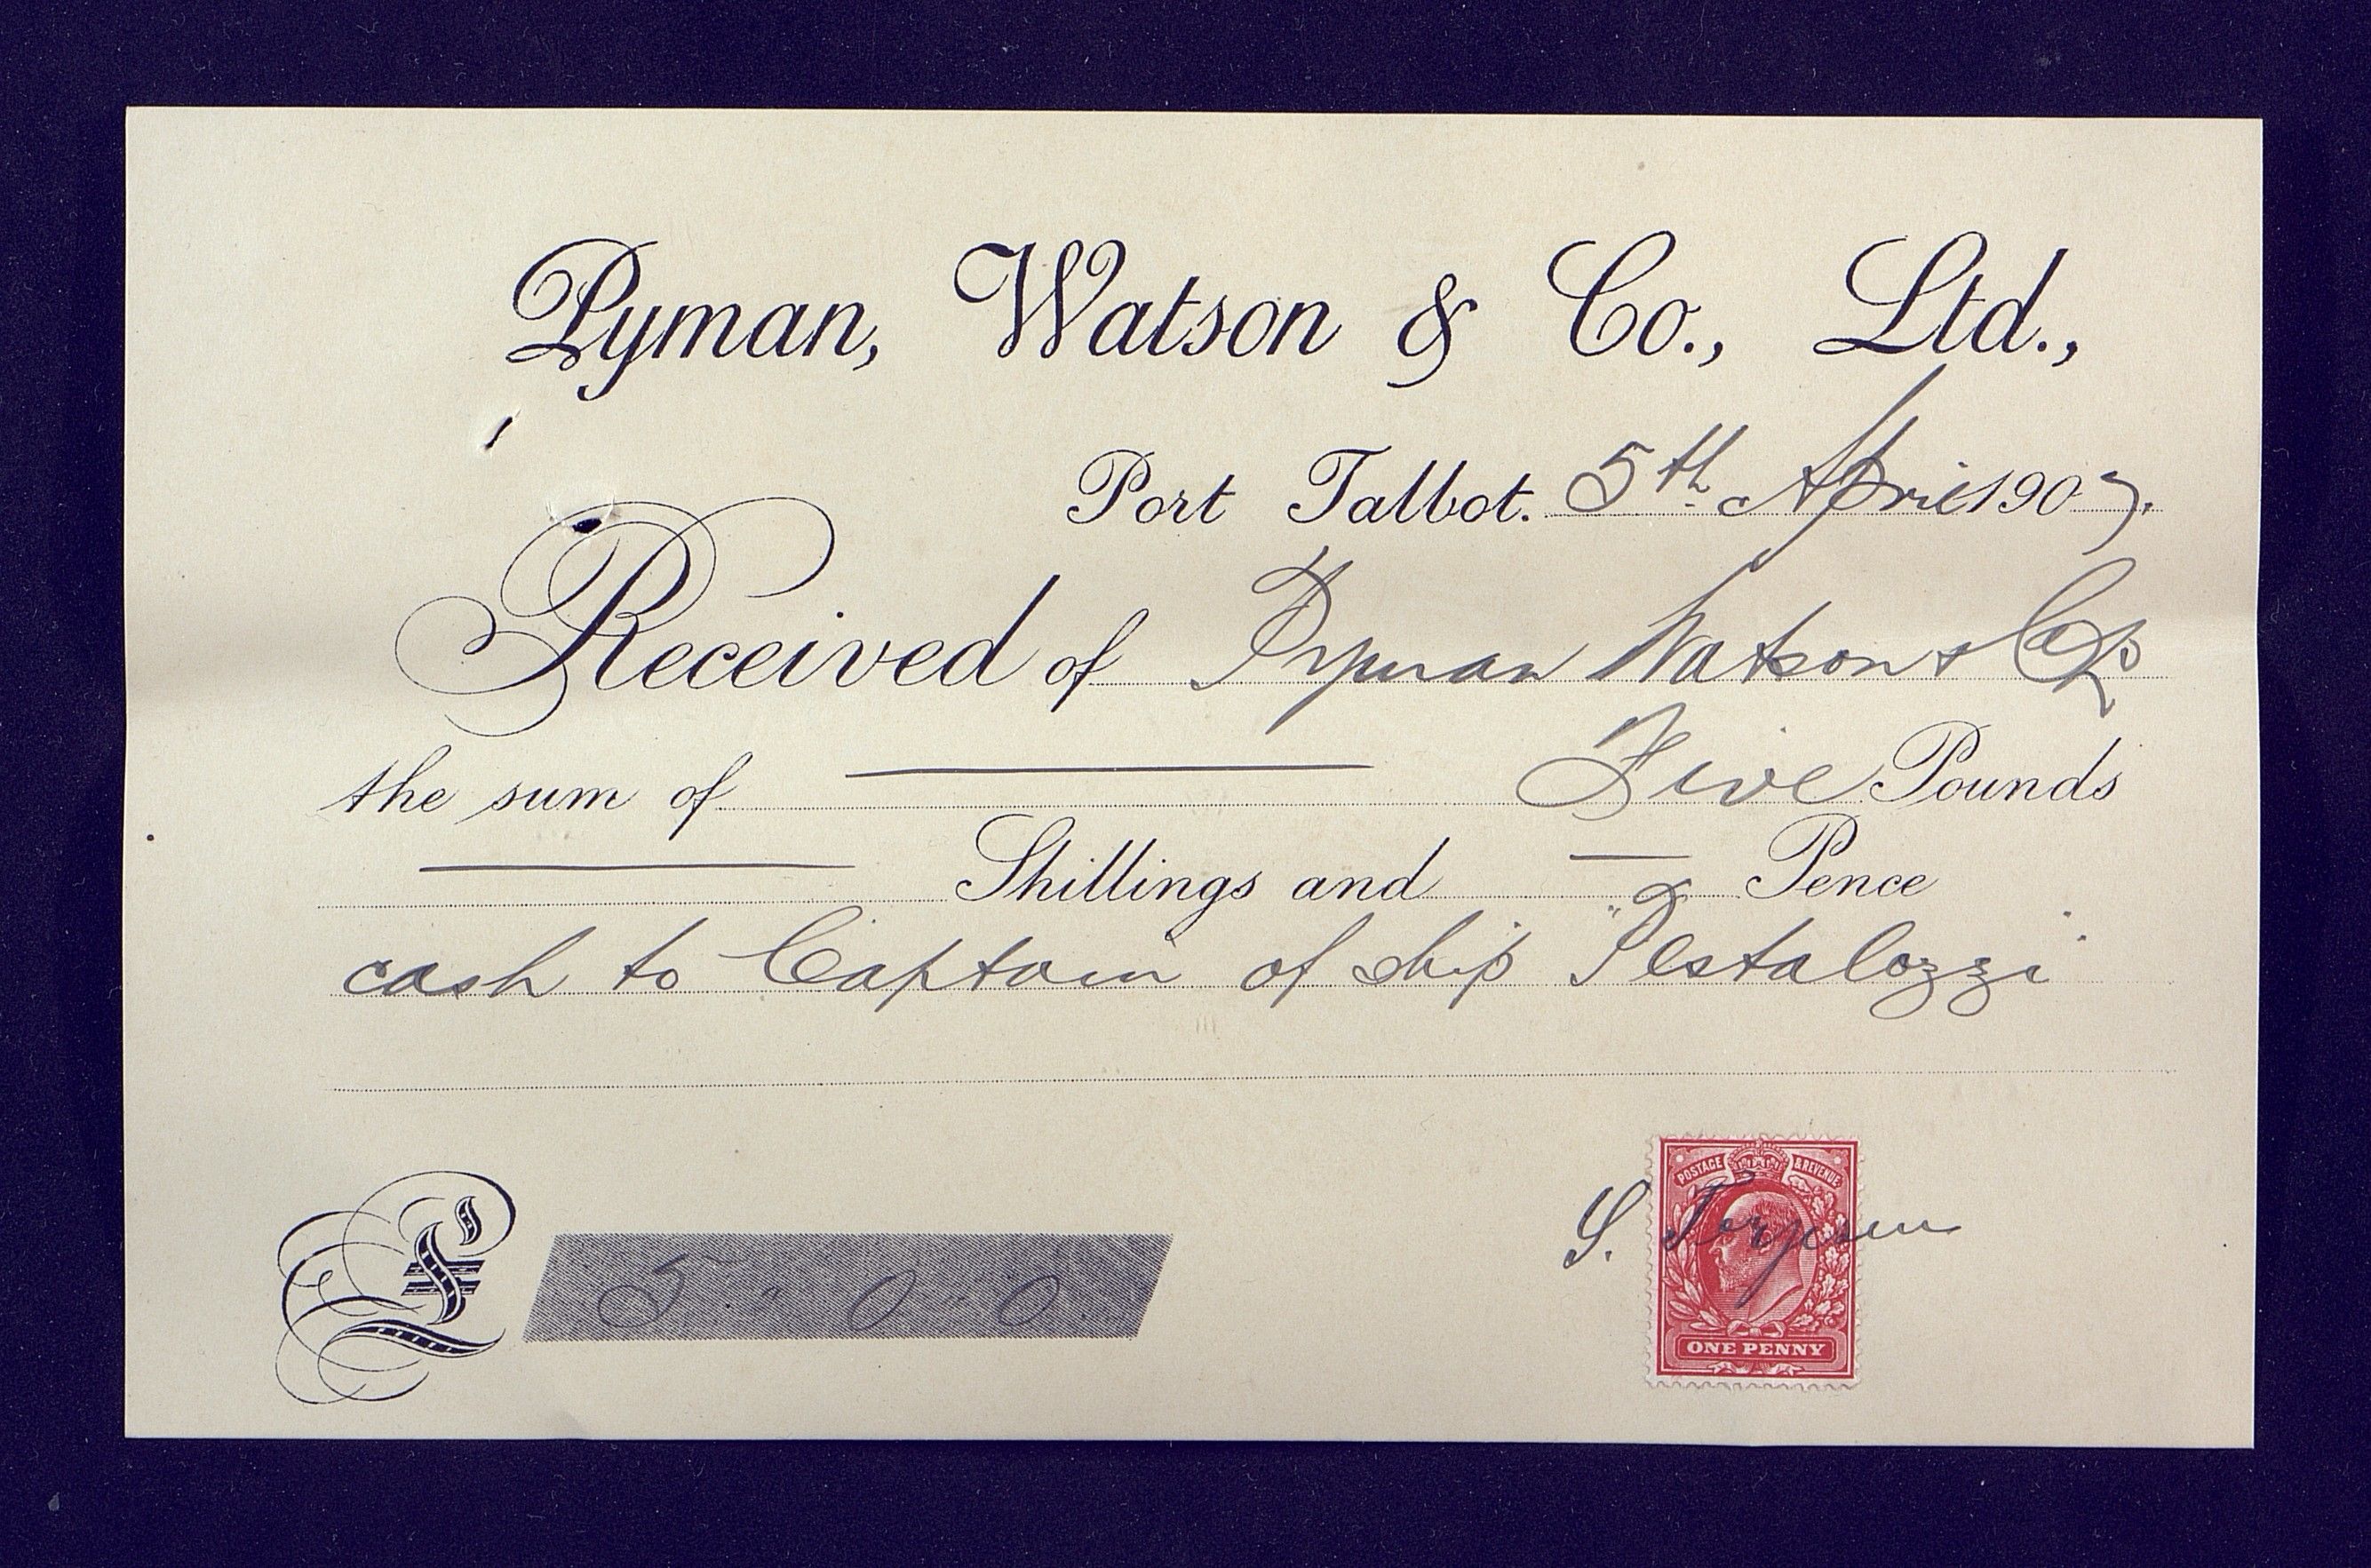 Pyman, Watson & Co., Ltd.,
Port Talbot. 5th April 1907.
Received of Pyman Watson & Co
the sum of Five Pounds
Shillings and Pence
cash to Captain of ship "Pestalozzi"
POSTAGE & REVENUE
S. Terjesen
£ 5 " 0 " 0
ONE PENNY